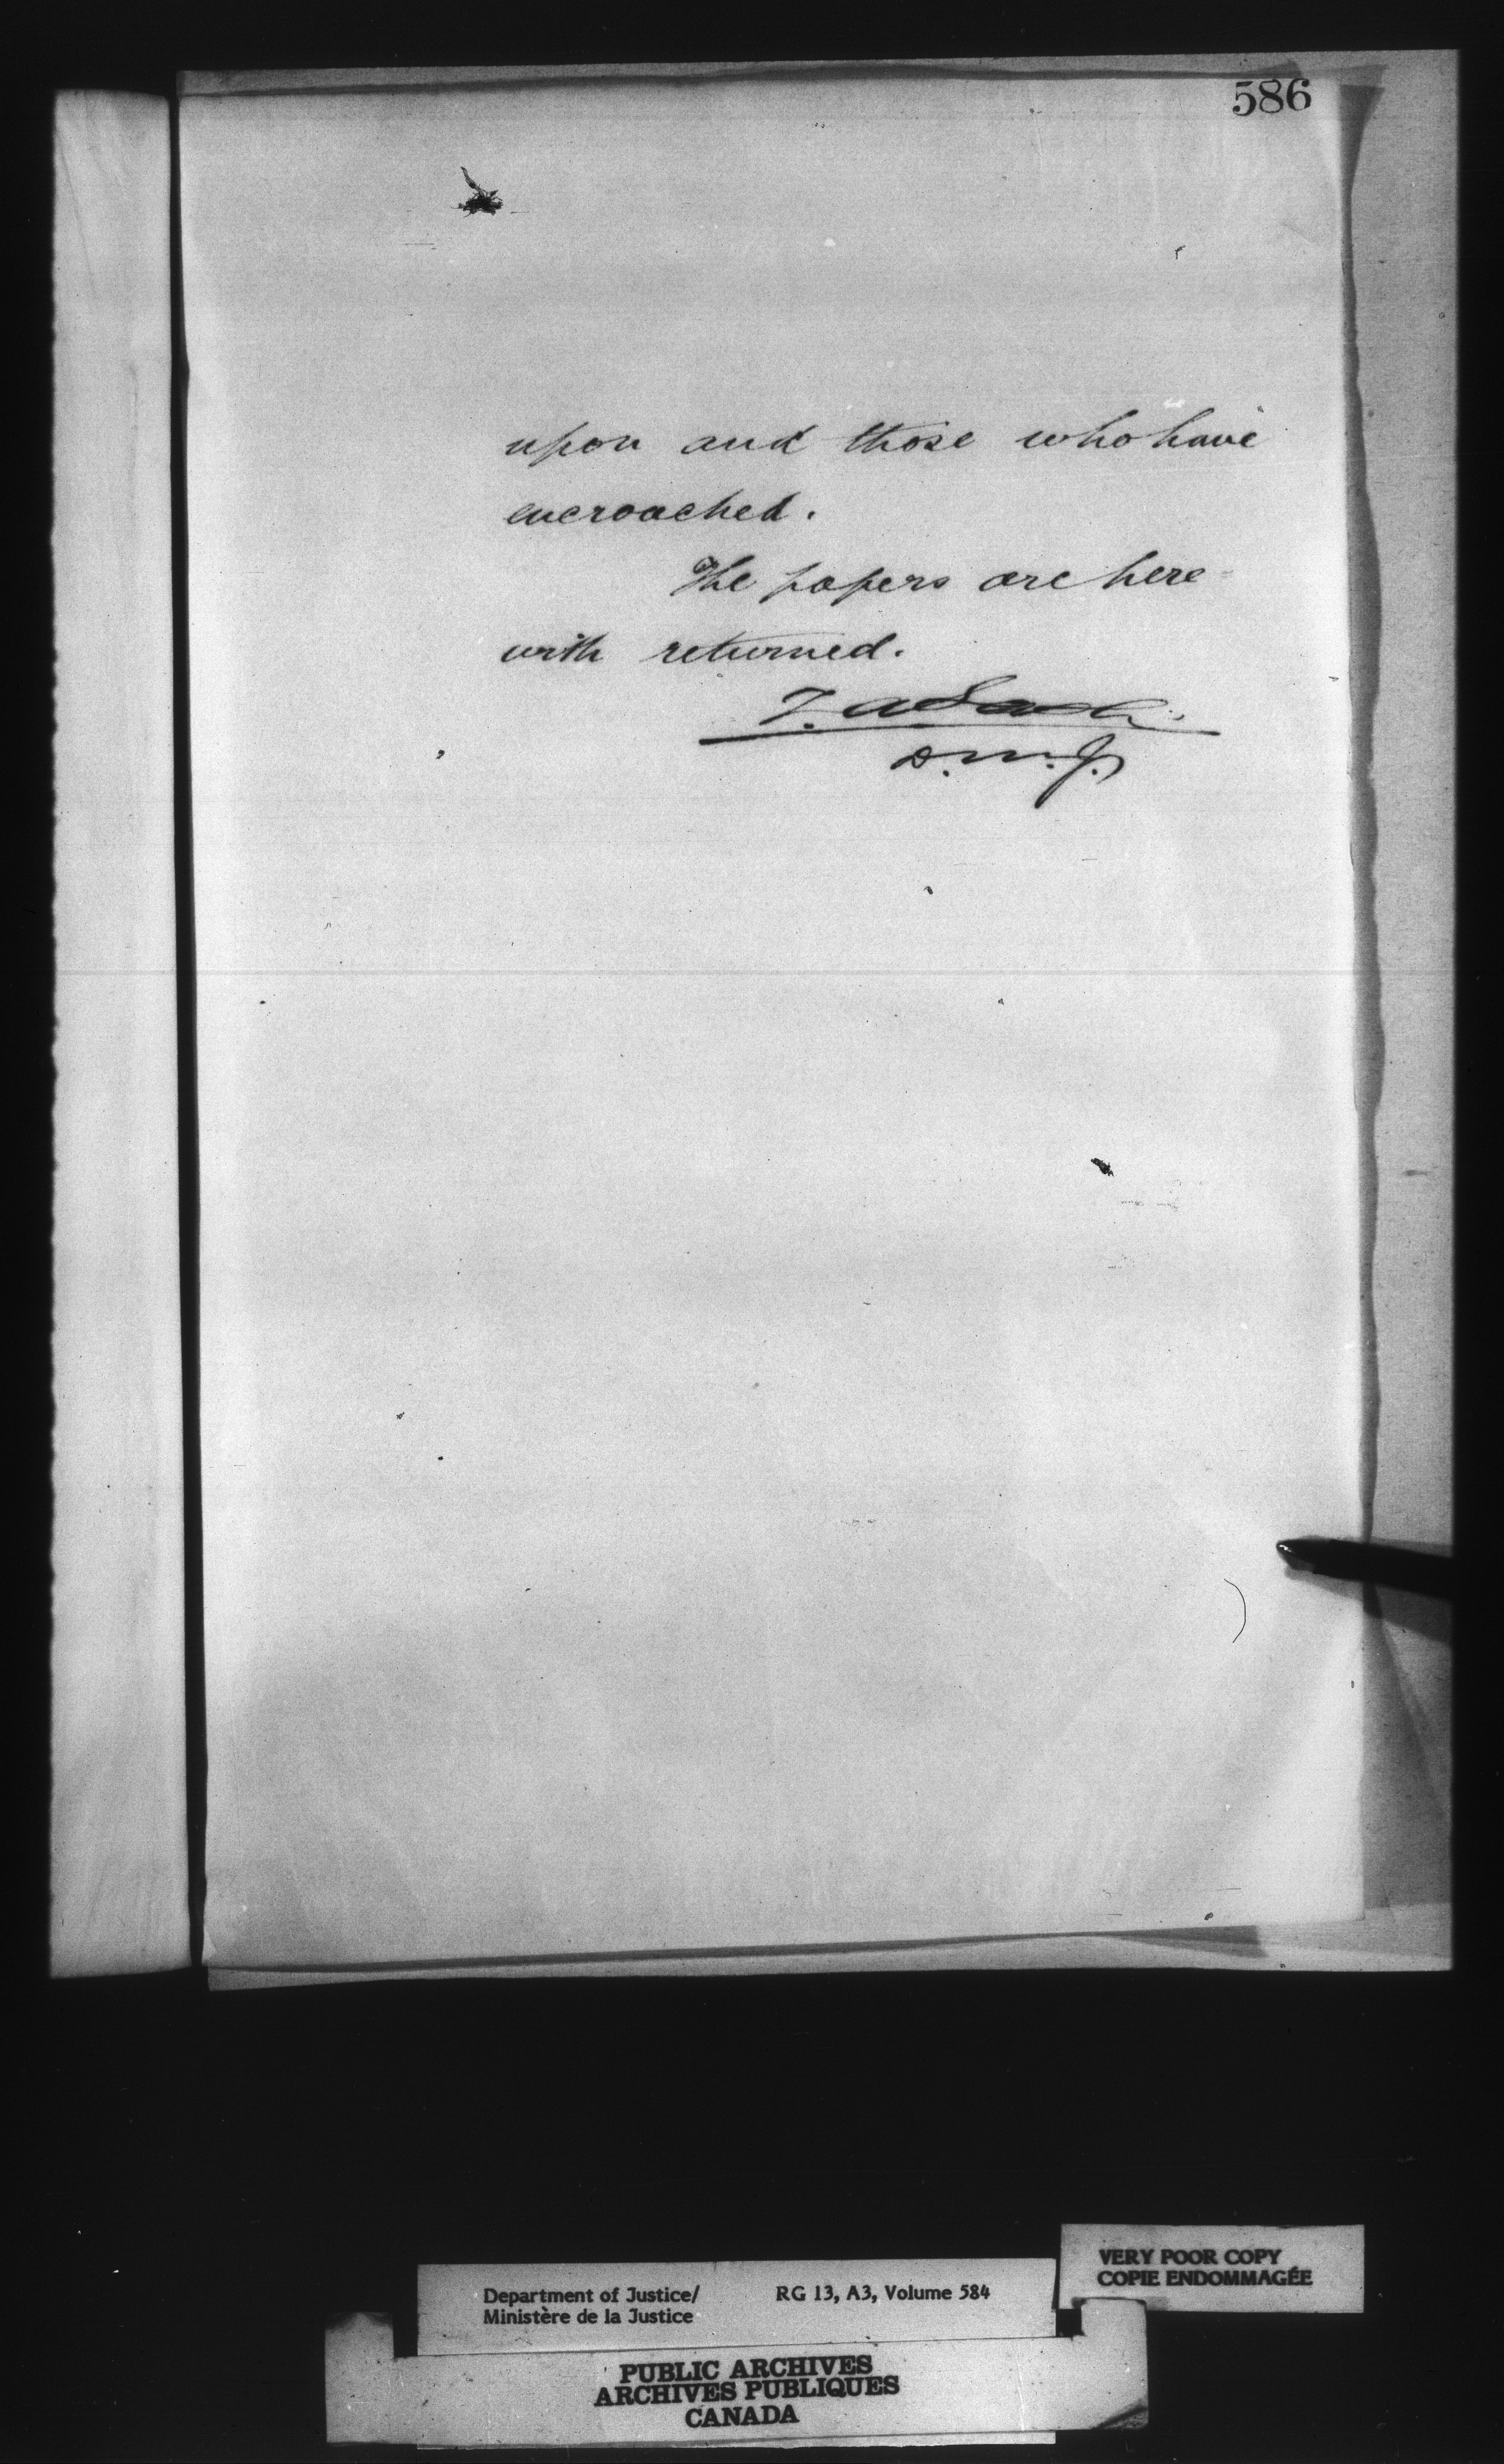 586
upon and those who have
encroached.
The papers are here
with returned.
D.M.J.
VERY POOR COPY
COPIE ENDOMMAGÉE
Department of Justice/
Ministère de la Justice
RG 13, A3, Volume 584
PUBLIC ARCHIVES
ARCHIVES PUBLIQUES
CANADA